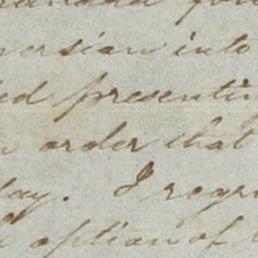 version into
ed presentin
order that
lay. I regr
option of